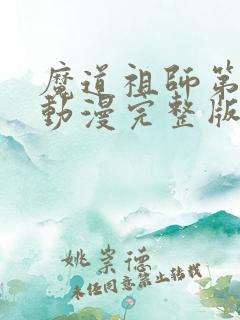 魔道祖師第
動漫完整版
姚崇德
未经同意禁止转载